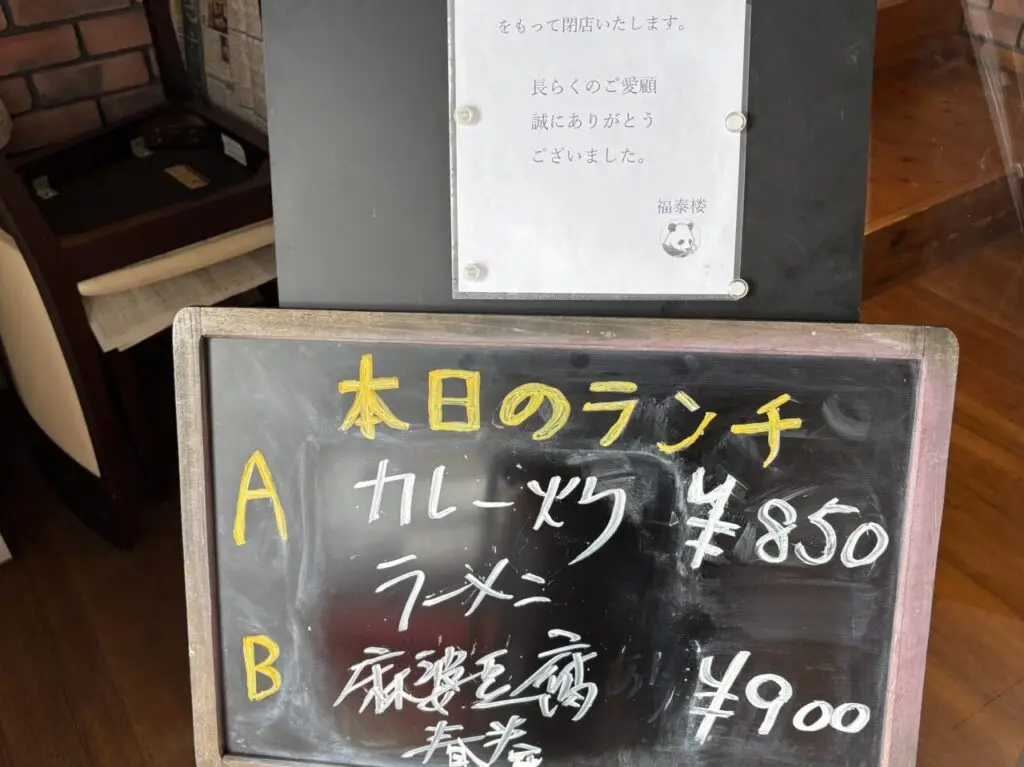 をもって閉店いたします。
長らくのご愛顧
誠にありがとう
ございました。
福泰楼
本日のランチ
A カレー炒 ¥850
ラーメン
B 麻婆豆腐 ¥900
春巻